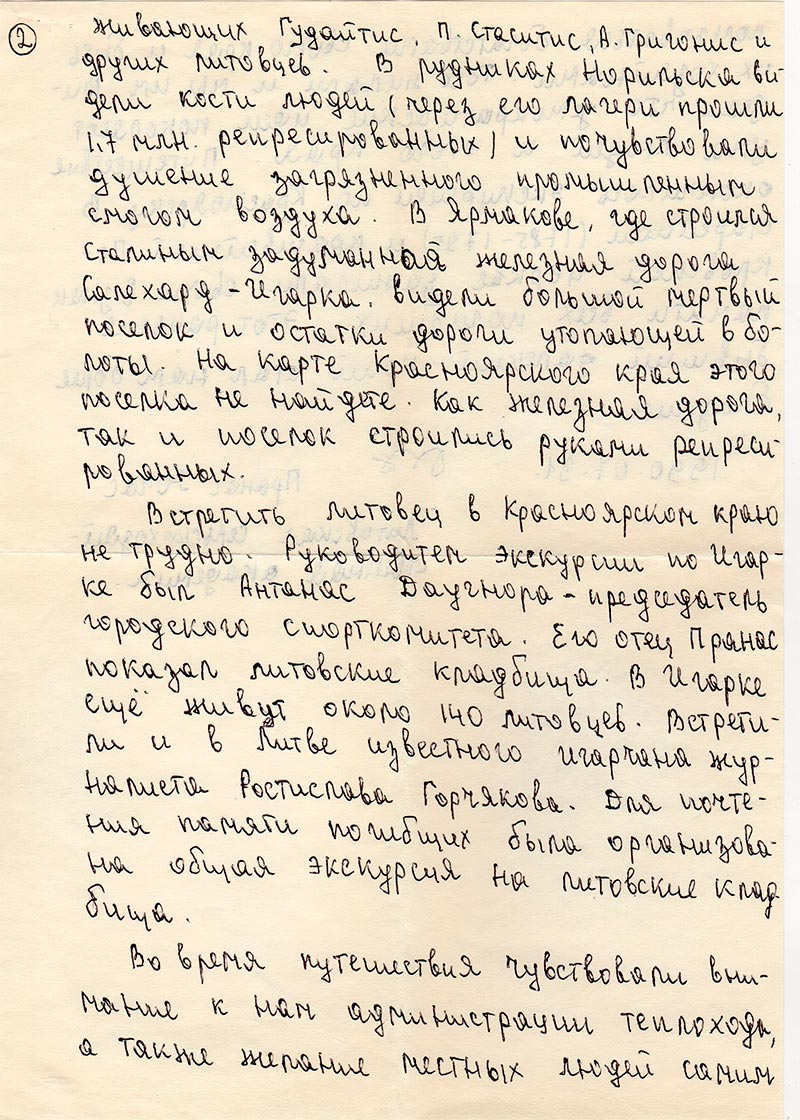 ②
живающих Гудайтис, П. Стаситис, А. Григонис и
других литовцев. В рудниках Норильска ви-
дели кости людей (через его лагери прошли
1,7 млн. репресированных) и почувствовали
душение загрязненного промышленным
смогом воздуха. В Ярмакове, где строился
Сталиным задуманной железная дорога
Салехард-Игарка, видели большой мертвый
поселок и остатки дороги утопающей в бо-
лоты. На карте Красноярского края этого
поселка не найдете. Как железная дорога,
так и поселок строились руками репреси-
рованных.
Встретить литовец в Красноярском краю
не трудно. Руководителем экскурсии по Игар-
ке был Антанас Даугнора - председатель
городского спорткомитета. Его отец Пранас
показал литовские кладбища. В Игарке
ещё живут около 140 литовцев. Встрети-
ли и в Литве известного игарчана жур-
налиста Ростислава Горчякова. Для почте-
ния памяти погибщих была организова-
на общая экскурсия на литовские клад-
бища.
Во время путешествия чувствовали вни-
мание к нам администрации теплохода,
а также желание местных людей самим